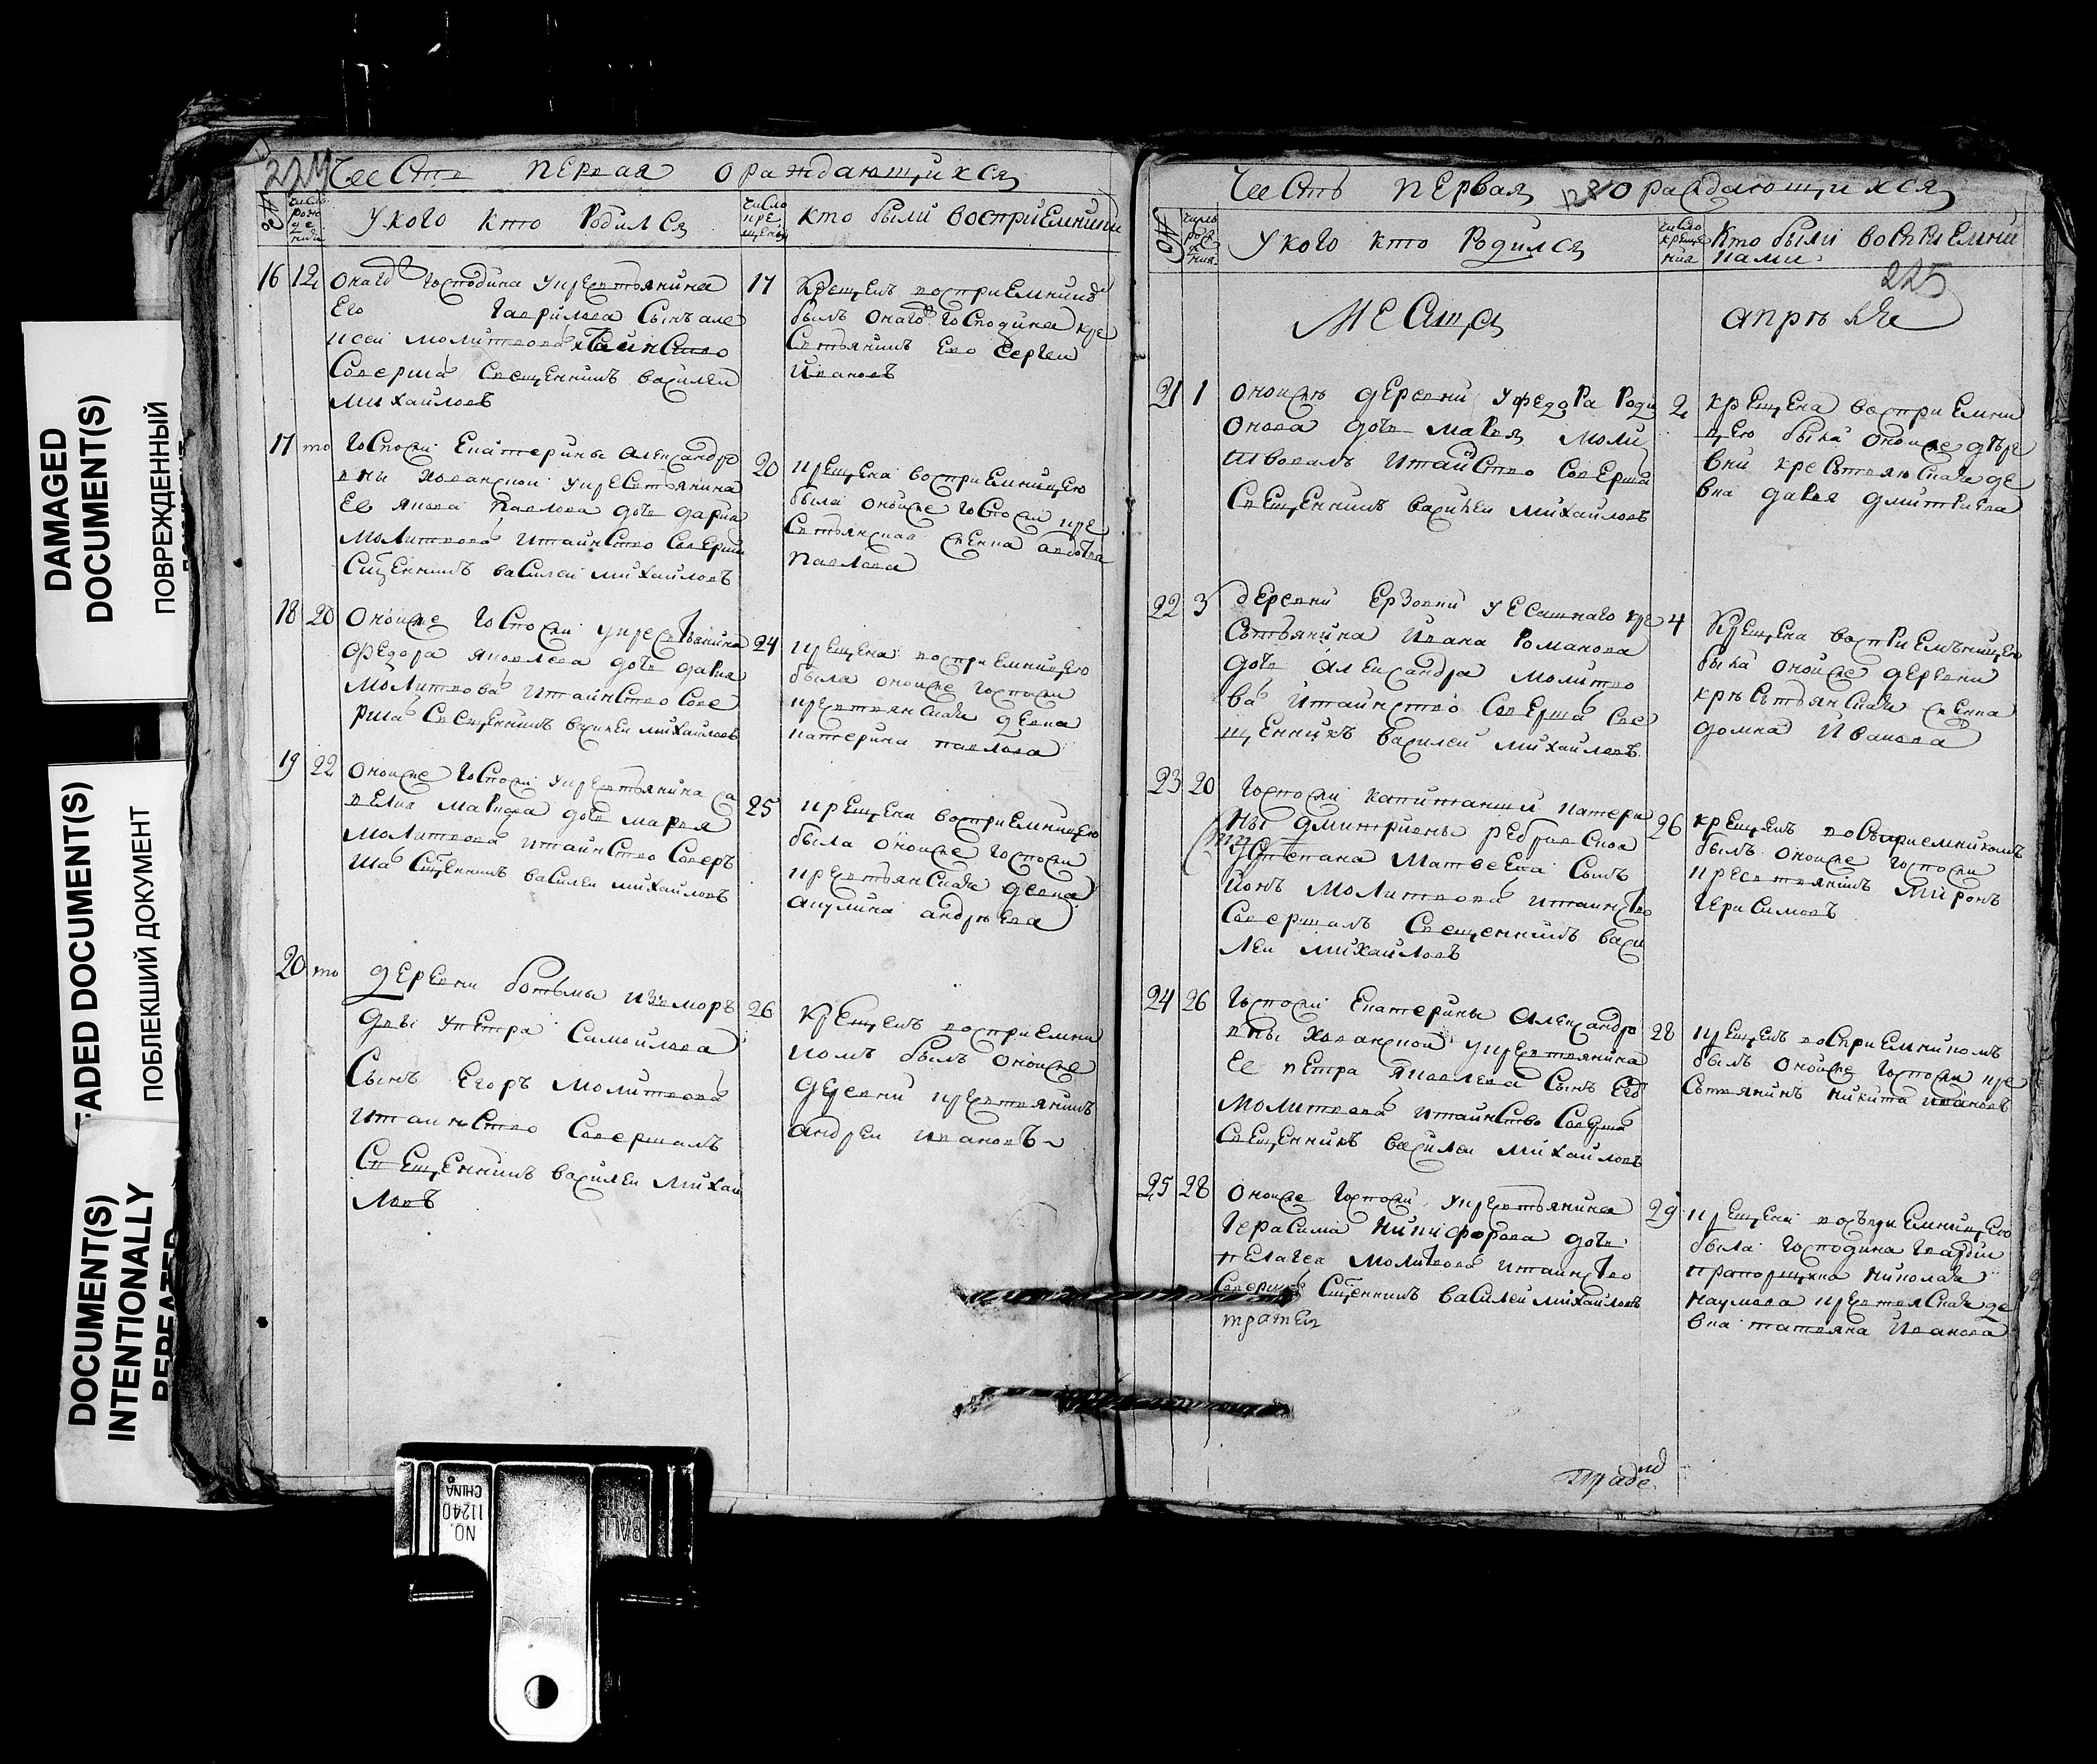 DAMAGED
DOCUMENT(S)
ПОВРЕЖДЕННЫЙ
FADED DOCUMENT(S)
ПОБЛЕКШИЙ ДОКУМЕНТ
DOCUMENT(S)
INTENTIONALLY
REPEATED
224 Часть первая о раждающихся
№
число рождения
У кого кто родился
число крещения
кто были восприемники
16 12
онаго господина у крестьянина
Его Гаврилова Сынъ але
ксеи молитвова и таинство
соверша священникъ василеи
михайловъ
17
крещенъ восприемникъ
былъ онагож господина кре
стьянинъ Ево Сергеи
Ивановъ
17 то
госпожи Екатерины александро
вны хованской у крестьянина
Ее якова Павлова дочь дарья
молитвова и таинство соверши
Сщенникъ василеи михайловъ
20
крещена восприемницею
была оной же госпожи кре
стьянская авдотья
павлова
18 20
Оной же госпожи у крестьянина
федора яковлева дочь дарья
молитвова и таинство сове
рша священникъ василеи михайловъ
24
крещена восприемницею
была оной же госпожи
крестьянская девка
катерина павлова
19 22
Оной же госпожи у крестьянина са
велия маркова дочь марья
молитвова и таинство соверъ
ша Сщенникъ василеи михайловъ
25
крещена восприемницею
была оной же госпожи
крестьянская девка
акулина андреева
20 то
деревни ботьмы из моръ
двы у петра Самойлова
Сынъ Егоръ молитвова
и таинство совершалъ
Священникъ василеи михаи
ловъ
26
крещенъ восприемни
комъ былъ оной же
деревни крестьянинъ
андреи ивановъ
Часть первая о раждающихся
№
число рождения
У кого кто родился
число крещения
Кто были восприемни
ками
225
Месяца апреля
21 1
оной же деревни у федора роди
онова дочь марья моли
твовалъ и таинство соверша
Священникъ василеи михайловъ
2
крещена восприемни
цею была оной же дере
вни крестьянская де
вка дарья дмитриева
22 3
деревни Ерзовки у ясашнаго кре
стьянина Ивана Романова
дочь александра молитво
ва и таинство соверша свя
щенникъ василеи михайловъ
4
Крещена восприемъницею
была оной же деревни
крестьянская
домна Иванова
23 20
госпожи капитанши катери
ны дмитриевны
у Степана Матвеева Сынъ
Ионъ молитвова и таинство
совершалъ священникъ васи
леи михайловъ
26
крещенъ восприемникомъ
былъ оной же госпожи
крестьянинъ Миронъ
герасимовъ
24 26
госпожи Екатерины александро
вны хованской у крестьянина
Ее петра яковлева Сынъ
молитвова и таинство соверша
Священникъ василеи михайловъ
28
крещенъ восприемникомъ
былъ оной же госпожи кре
стьянинъ никита ивановъ
25 28
оной же госпожи у крестьянина
герасима никифорова дочь
пелагея молитвова и таинство
соверша Сщенникъ василеи михайловъ
29
крещена восприемницею
была господина гвардии
прапорщика николая
наумова крестьянская де
вка татьяна Иванова
NO.
11240
CHINA